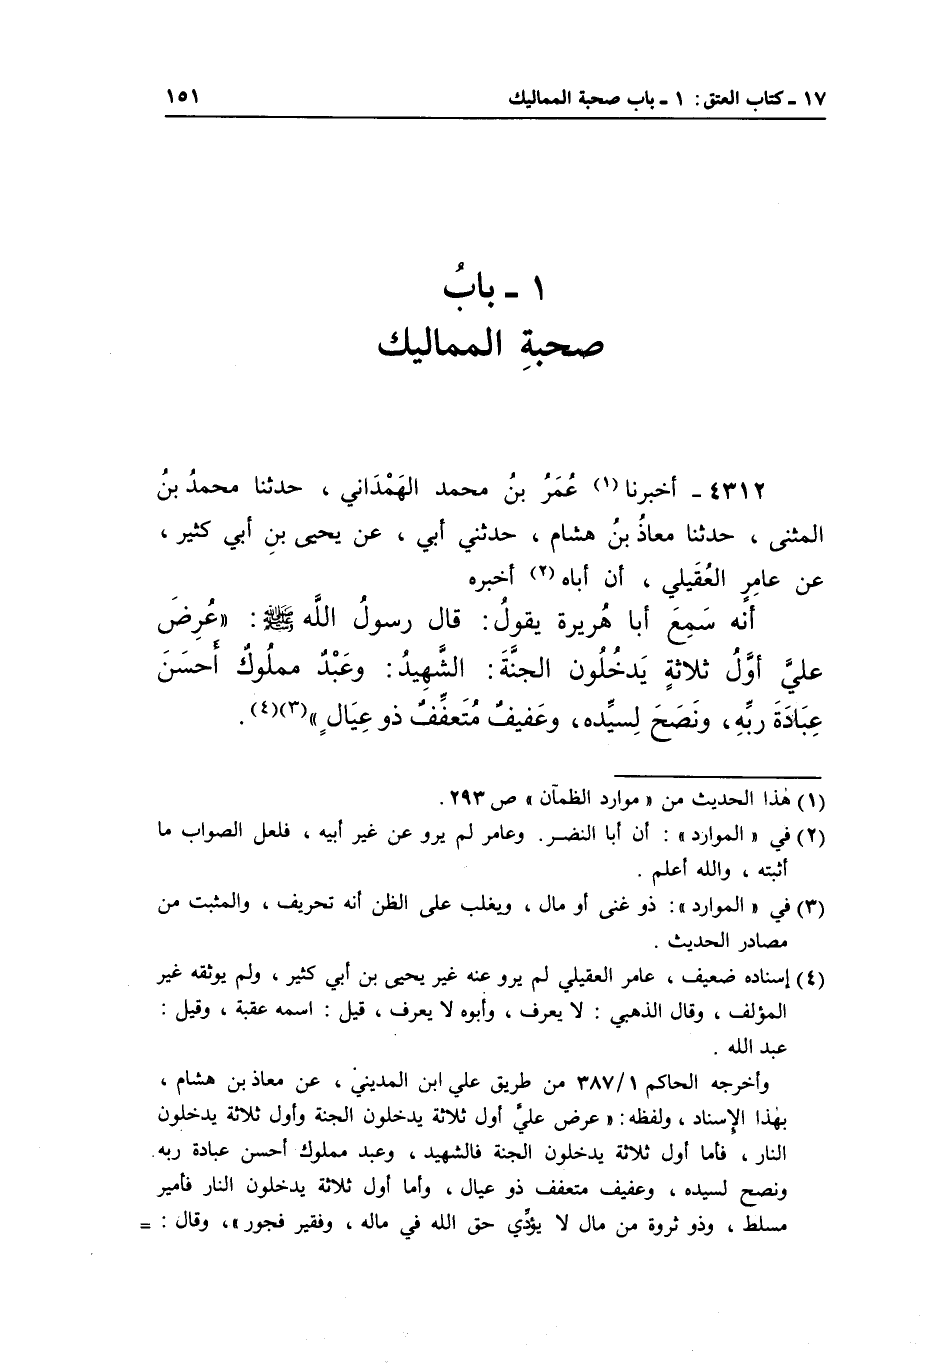 ١٧ ـ كتاب العتق: ١ ـ باب صحبة المماليك ١٥١
١ ـ بابُ
صحبةِ المماليك
٤٣١٢ ـ أخبرنا(١) عُمَرُ بنُ محمد الهَمْدَاني ، حدثنا محمدُ بنُ
المثنى ، حدثنا معاذُ بنُ هشام ، حدثني أبي ، عن يحيى بنِ أبي كثير ،
عن عامِرٍ العُقَيلي ، أن أباه(٢) أخبره
أنه سَمِعَ أبا هُريرة يقولُ: قال رسولُ اللَّه ﷺ: «عُرِضَ
عليَّ أوَّلُ ثلاثةٍ يَدخُلُون الجنَّةَ: الشَّهِيدُ: وعَبْدٌ مملُوكٌ أَحسَنَ
عِبَادَةَ ربِّهِ، ونَصَحَ لِسيِّده، وعَفيفٌ مُتَعفِّفٌ ذو عِيَالٍ»(٣)(٤).
(١) هٰذا الحديث من « موارد الظمآن » ص ٢٩٣ .
(٢) في « الموارد» : أن أبا النضر. وعامر لم يرو عن غير أبيه ، فلعل الصواب ما
أثبته ، والله أعلم .
(٣) في « الموارد»: ذو غنى أو مال ، ويغلب على الظن أنه تحريف ، والمثبت من
مصادر الحديث .
(٤) إسناده ضعيف ، عامر العقيلي لم يرو عنه غير يحيى بن أبي كثير ، ولم يوثقه غير
المؤلف ، وقال الذهبي : لا يعرف ، وأبوه لا يعرف ، قيل : اسمه عقبة ، وقيل :
عبد الله .
وأخرجه الحاكم ٣٨٧/١ من طريق علي ابن المديني ، عن معاذ بن هشام ،
بهٰذا الإِسناد ، ولفظه: « عرض عليَّ أول ثلاثة يدخلون الجنة وأول ثلاثة يدخلون
النار ، فأما أول ثلاثة يدخلون الجنة فالشهيد ، وعبد مملوك أحسن عبادة ربه
ونصح لسيده ، وعفيف متعفف ذو عيال ، وأما أول ثلاثة يدخلون النار فأمير
مسلط ، وذو ثروة من مال لا يؤدِّي حق الله في ماله ، وفقير فجور»، وقال : =